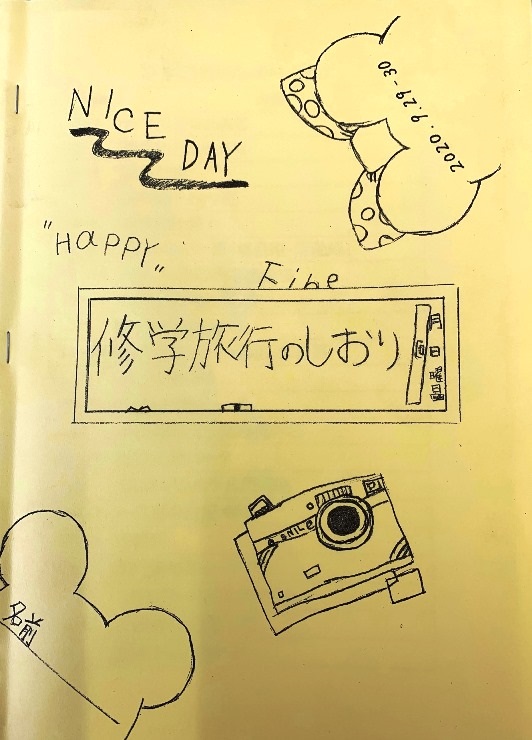 NICE
DAY
2020.9.29-30
"HAPPY"
Fine
修学旅行のしおり
月 日 曜日
SMILE
名前